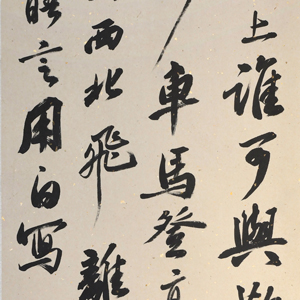 上誰可與歡
車馬登高
西北飛離
晤言用自寫